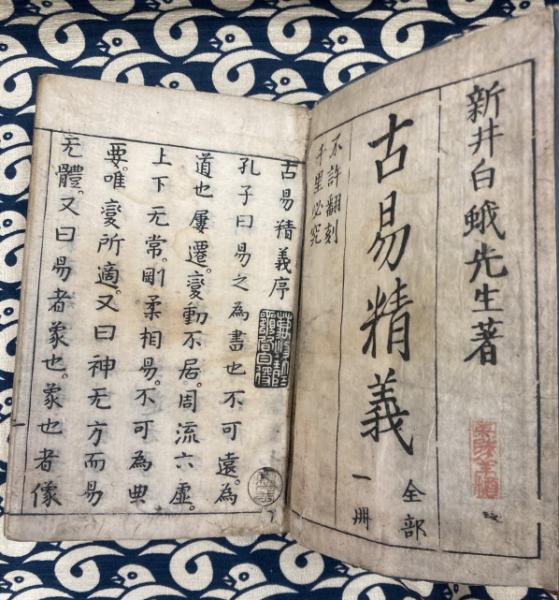 新井白蛾先生著
古易精義
全部
一冊
不許翻刻
千里必究
古易精義序
孔子曰易之為書也不可遠為
道也屢遷。變動不居。周流六虛。
上下无常。剛柔相易。不可為典
要。唯變所適。又曰神无方而易
无體。又曰易者象也。象也者像